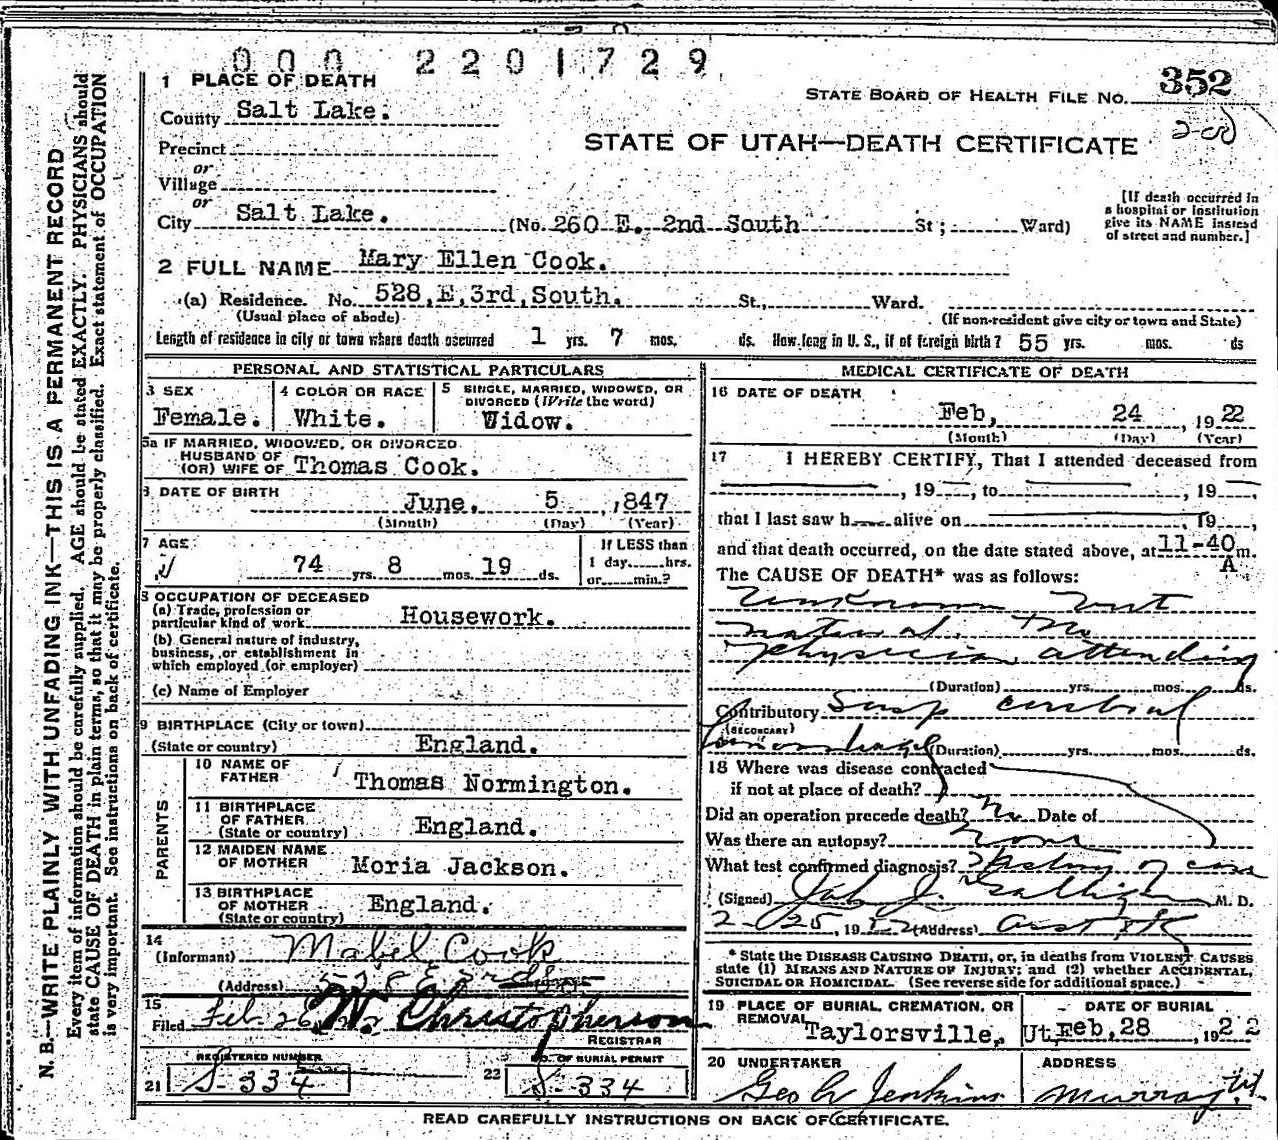 000 2201729
1 PLACE OF DEATH
STATE BOARD OF HEALTH FILE NO. 352
County Salt Lake.
STATE OF UTAH—DEATH CERTIFICATE
Precinct
or
Village
or
City Salt Lake. (No. 260 E. 2nd South St; Ward)
[If death occurred in
a hospital or institution
give its NAME instead
of street and number.]
2 FULL NAME Mary Ellen Cook.
(a) Residence. No. 528, E, 3rd, South. St., Ward.
(Usual place of abode) (If non-resident give city or town and State)
Length of residence in city or town where death occurred 1 yrs. 7 mos. ds. How long in U. S., if of foreign birth? 55 yrs. mos. ds
PERSONAL AND STATISTICAL PARTICULARS
3 SEX
Female.
4 COLOR OR RACE
White.
5 SINGLE, MARRIED, WIDOWED, OR
DIVORCED (Write the word)
Widow.
5a IF MARRIED, WIDOWED, OR DIVORCED
HUSBAND OF
(OR) WIFE OF Thomas Cook.
6 DATE OF BIRTH
June, 5 ,847
(Month) (Day) (Year)
7 AGE
74 yrs. 8 mos. 19 ds.
If LESS than
1 day......hrs.
or......min.?
8 OCCUPATION OF DECEASED
(a) Trade, profession or
particular kind of work Housework.
(b) General nature of industry,
business, or establishment in
which employed (or employer)
(c) Name of Employer
9 BIRTHPLACE (City or town)
(State or country) England.
PARENTS
10 NAME OF
FATHER Thomas Normington.
11 BIRTHPLACE
OF FATHER
(State or country) England.
12 MAIDEN NAME
OF MOTHER Moria Jackson.
13 BIRTHPLACE
OF MOTHER
(State or country) England.
14
(Informant) Mabel Cook
(Address) 528 E 3rd So
15
Filed Feb. 26, 22 W. Christopherson
REGISTRAR
REGISTERED NUMBER
21 S-334
NO. OF BURIAL PERMIT
22 S-334
MEDICAL CERTIFICATE OF DEATH
16 DATE OF DEATH
Feb, 24 , 19 22
(Month) (Day) (Year)
17 I HEREBY CERTIFY, That I attended deceased from
, 19 , to , 19 ,
that I last saw h alive on 19 ,
and that death occurred, on the date stated above, at 11-40 m.
A
The CAUSE OF DEATH* was as follows:
Unknown but
natural. No
physician attending
(Duration) yrs. mos. ds.
Contributory Susp cerebral
(SECONDARY)
hemorrhage (Duration) yrs. mos. ds.
18 Where was disease contracted
if not at place of death?
Did an operation precede death? No Date of
Was there an autopsy? none
What test confirmed diagnosis? History of case
(Signed) J. M. D.
2-25, 1922 (Address)
* State the DISEASE CAUSING DEATH, or, in deaths from VIOLENT CAUSES
state (1) MEANS AND NATURE OF INJURY; and (2) whether ACCIDENTAL,
SUICIDAL OR HOMICIDAL. (See reverse side for additional space.)
19 PLACE OF BURIAL, CREMATION, OR
REMOVAL Taylorsville, Ut,
DATE OF BURIAL
Feb, 28 , 1922
20 UNDERTAKER
Geo A Jenkins
ADDRESS
Murray Ut.
READ CAREFULLY INSTRUCTIONS ON BACK OF CERTIFICATE.
N. B.—WRITE PLAINLY WITH UNFADING INK—THIS IS A PERMANENT RECORD
Every item of information should be carefully supplied. AGE should be stated EXACTLY. PHYSICIANS should
state CAUSE OF DEATH in plain terms, so that it may be properly classified. Exact statement of OCCUPATION
is very important. See instructions on back of certificate.